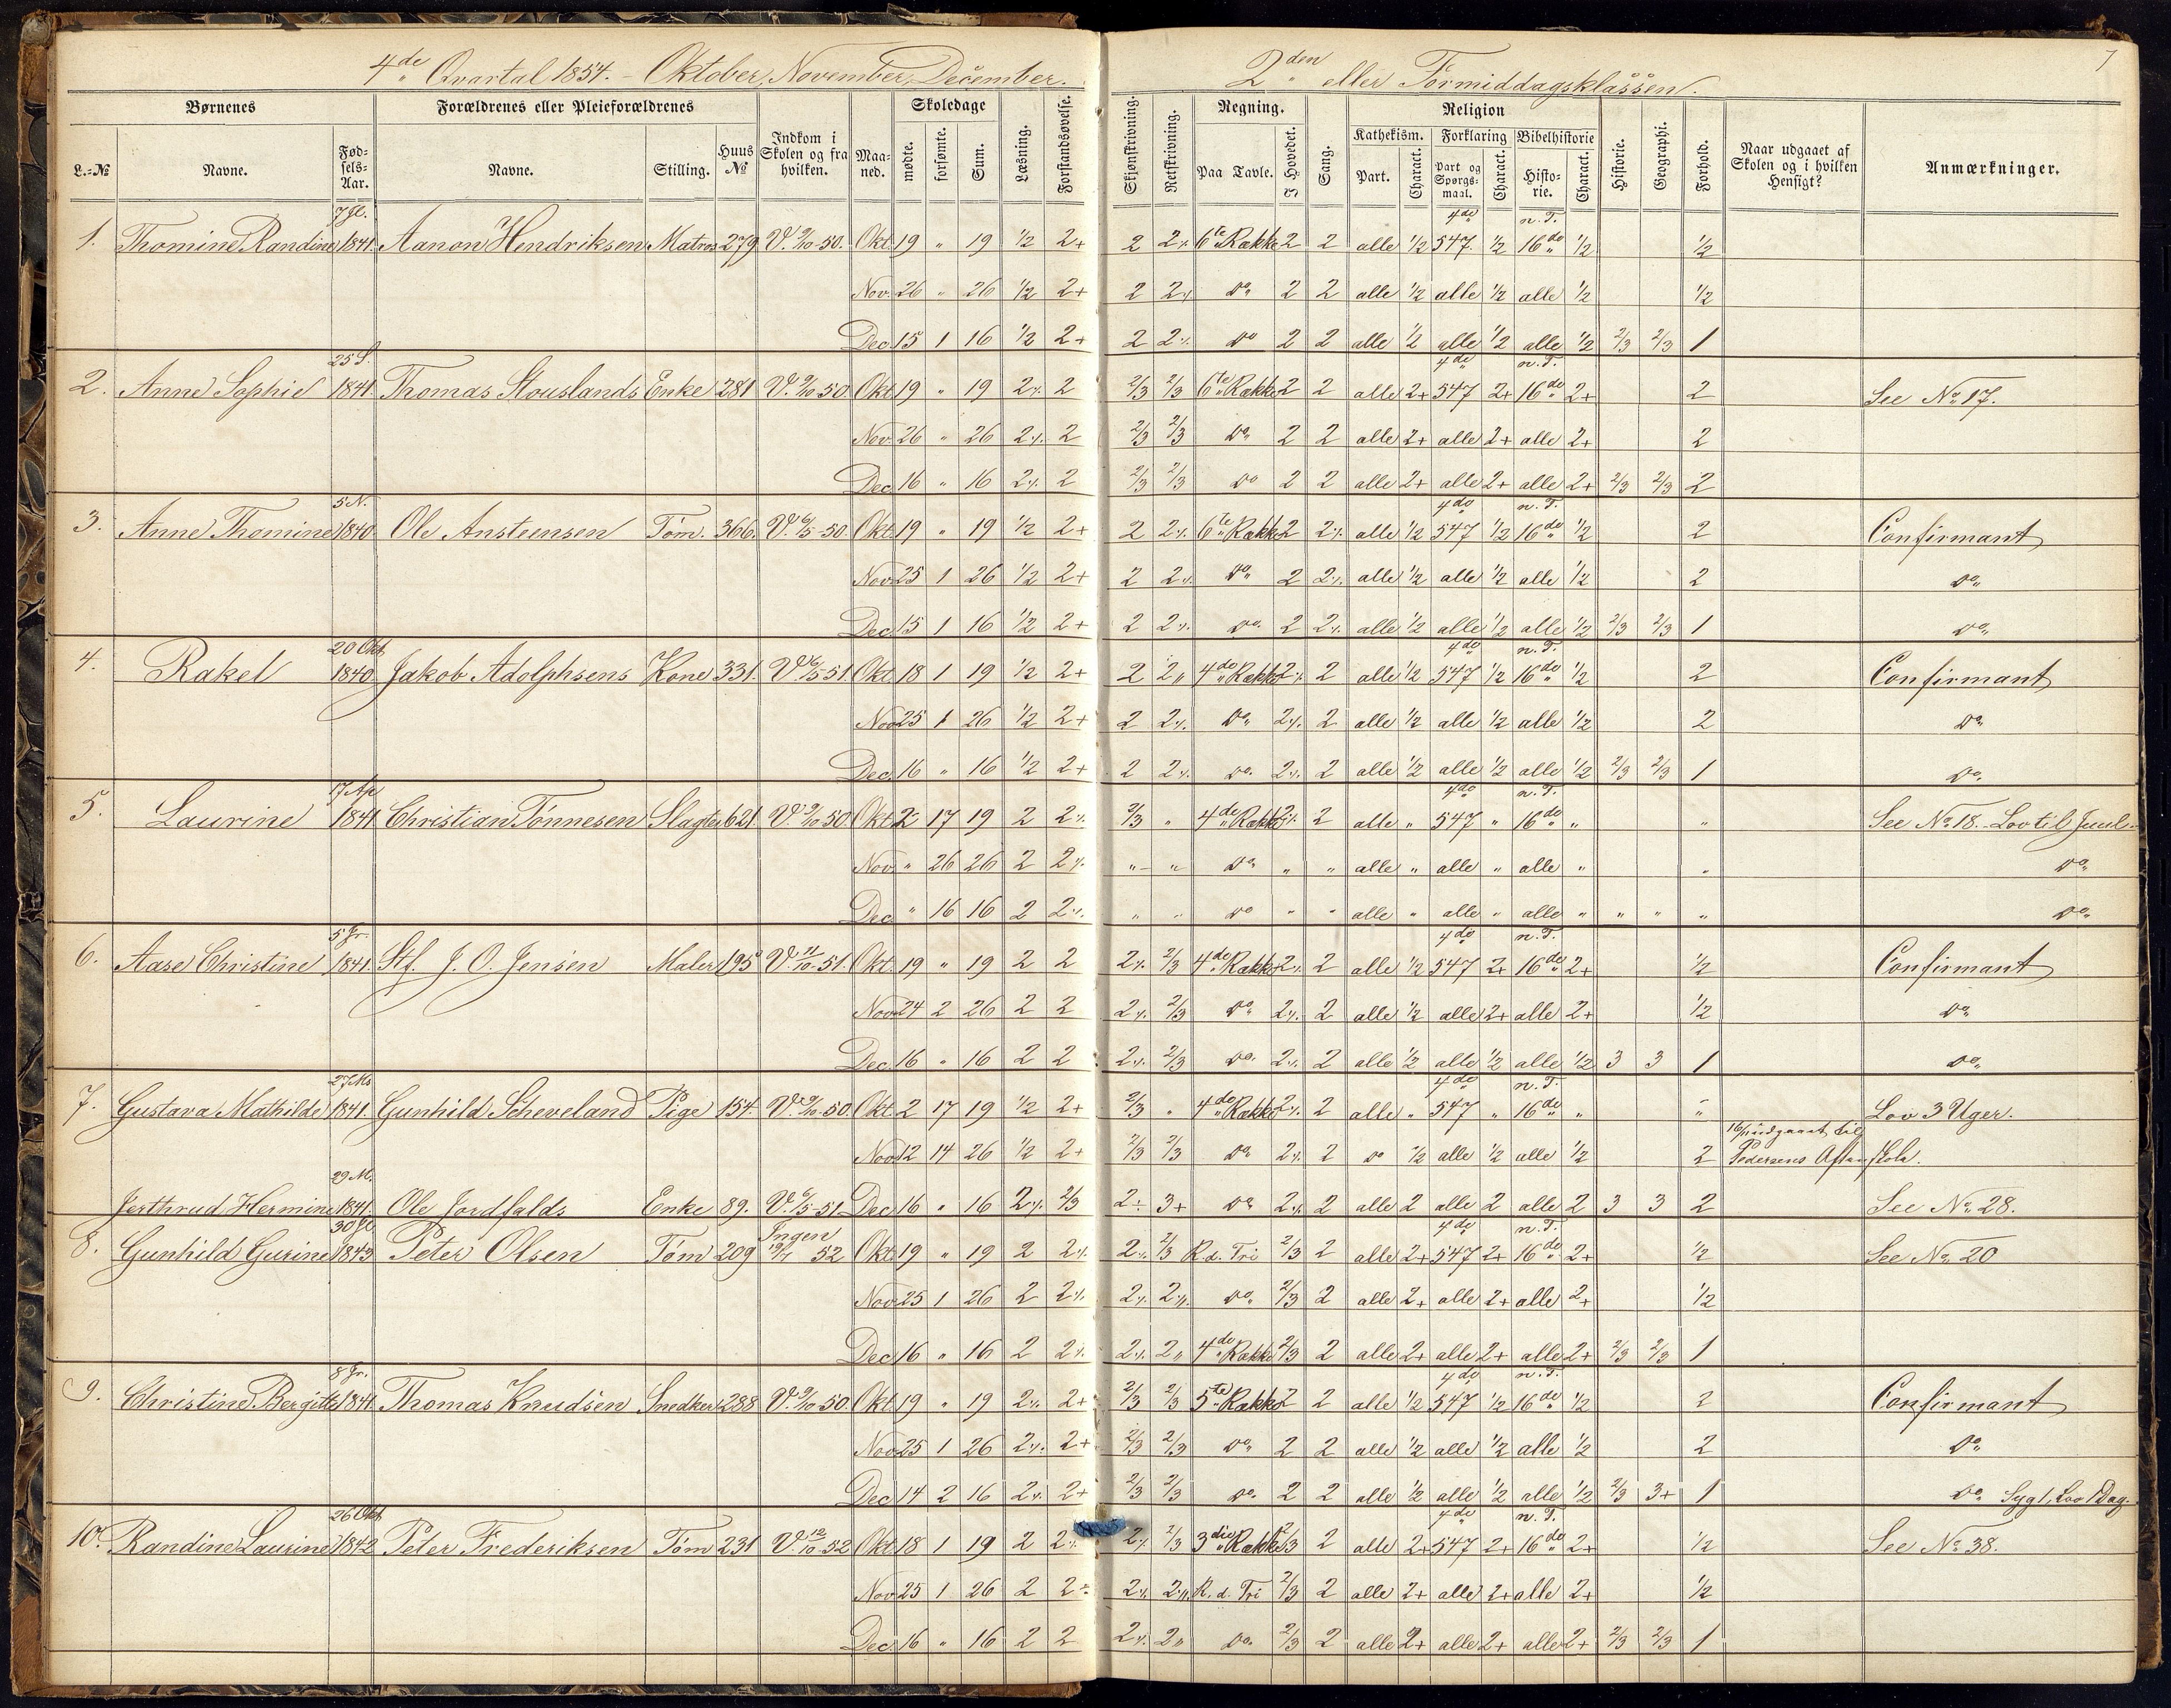 4de Qvartal 1854. - Oktober, November, December. 2den eller Formiddagsklassen. 7
Børnenes Forældrenes eller Pleieforældrenes Indkom i Skolen og fra hvilken. Maa-ned. Skoledage Læsning. Forstandsøvelse. Skjønskrivning. Retskrivning. Regning. Sang. Religion Historie. Geographi. Forhold. Naar udgaaet af Skolen og i hvilken Hensigt? Anmærkninger.
L.-№ Navne. Fød-sels-Aar. Navne. Stilling. Huus № mødte. forsømte. Sum. Paa Tavle. I Hovedet. Kathekism. Part. Charact. Forklaring Part og Spørgs-maal. Charact. Bibelhistorie Histo-rie. Charact.
7 Jl. 4de n. T.
1. Thomine Randine 1841. Aanon Hendriksen Matros 279 V. 9/10-50. Okt. 19 " 19 1/2 2+ 2 2% 6te Række 2 2 alle 1/2 547. 1/2 16de 1/2 1/2
Nov. 26 " 26 1/2 2+ 2 2% do 2 2 alle 1/2 alle 1/2 alle 1/2 1/2
Dec. 15 1 16 1/2 2+ 2 2% do 2 2 alle 1/2 alle 1/2 alle 1/2 2/3 2/3 1
25 S. 4de n. T.
2. Anne Sophie 1841. Thomas Stouslands Enke 281 V. 9/10 50. Okt. 19 " 19 2% 2 2/3 2/3 6te Række 2 2 alle 2+ 547 2+ 16de 2+ 2 See No 17.
Nov. 26 " 26 2% 2 2/3 2/3 do 2 2 alle 2+ alle 2+ alle 2+ 2
Dec. 16 " 16 2% 2 2/3 2/3 do 2 2 alle 2+ alle 2+ alle 2+ 2/3 2/3 2
5 N. 4de n. T.
3. Anne Thomine 1840 Ole Ansteensen Tøm. 366. V. 6/5-50. Okt. 19 " 19 1/2 2+ 2 2% 6te Række 2 2% alle 1/2 547 1/2 16de 1/2 2 Confirmant
Nov. 25 1 26 1/2 2+ 2 2% do 2 2% alle 1/2 alle 1/2 alle 1/2 2 do
Dec. 15 1 16 1/2 2+ 2 2% do 2 2% alle 1/2 alle 1/2 alle 1/2 2/3 2/3 1 do
20 Okt 4de n. T.
4. Rakel 1840 Jakob Adolphsens Kone 331. V. 6/5-51. Okt. 18 1 19 1/2 2+ 2 2" 4de Række 2% 2 alle 1/2 547 1/2 16de 1/2 2 Confirmant
Nov. 25 1 26 1/2 2+ 2 2% do 2% 2 alle 1/2 alle 1/2 alle 1/2 2 do
Dec. 16 " 16 1/2 2+ 2 2% do 2% 2 alle 1/2 alle 1/2 alle 1/2 2/3 2/3 1 do
17 Ap 4de n. T.
5. Laurine 1841 Christian Tønnesen Slagter 621. V. 9/10 50. Okt. 2 17 19 2 2% 2/3 " 4de Række 2% 2 alle " 547 " 16de " " See No 18. Lov til Juul.
Nov. " 26 26 2 2% " " do " " alle " alle " alle " " do
Dec. " 16 16 2 2% " " do " " alle " alle " alle " " " " do
5 Jr. 4de n. T.
6. Aase Christine 1841. Stf. J. O. Jensen Maler 195 V. 21/10-51. Okt. 19 " 19 2 2 2% 2/3 4de Række 2% 2 alle 1/2 547 2+ 16de 2+ 1/2 Confirmant
Nov. 24 2 26 2 2 2% 2/3 do 2% 2 alle 1/2 alle 2+ alle 2+ 1/2 do
Dec. 16 " 16 2 2 2% 2/3 do 2% 2 alle 1/2 alle 1/2 alle 1/2 3 3 1 do
27 Ms 4de n. T.
7. Gustava Mathilde 1841. Gunhild Scheveland Pige 154. V. 29/10-50. Okt. 2 17 19 1/2 2+ 2/3 " 4de Række 2% 2 alle " 547 " 16de " " Lov 3 Uger.
Nov. 12 14 26 1/2 2+ 2/3 2/3 do 2% 2 do 1/2 alle 1/2 alle 1/2 2 16/11 udgaaet til Pedersens Aftenskole.
29 M.
Jerthrud Hermine 1841. Ole Jordfalds Enke 89. V. 6/5-51. Dec. 16 " 16 2% 2/3 2÷ 3+ do 2% 2 alle 2 alle 2 alle 2 3 3 2 See No 28.
30 Jl Ingen 4de n. T.
8. Gunhild Gurine 1843 Peter Olsen Tøm 209 19/7 52 Okt. 19 " 19 2 2% 2% 2/3 R. d. Tri 2/3 2 alle 2+ 547 2+ 16de 2+ 1/2 See No 20
Nov. 25 1 26 2 2% 2% 2% do 2/3 2 alle 2+ alle 2+ alle 2+ 1/2
Dec. 16 " 16 2 2% 2% 2" 4de Række 2/3 2 alle 2+ alle 2+ alle 2+ 2/3 2/3 1
8 Jr. 4de n. T.
9. Christine Bergitte 1841 Thomas Knudsen Snedker 288 V. 9/10 50. Okt. 19 " 19 2% 2+ 2/3 2/3 5te Række 2 2 alle 1/2 547 1/2 16de 1/2 2 Confirmant
Nov. 25 1 26 2% 2+ 2/3 2/3 do 2 2 alle 1/2 alle 1/2 alle 1/2 2 do
Dec. 14 2 16 2% 2+ 2/3 2/3 do 2 2 alle 1/2 alle 1/2 alle 1/2 2/3 3+ 1 do Syg 1, Lov 1 Dag.
26 Okt 4de n. T.
10. Randine Laurine 1842 Peter Frederiksen Tøm 231 V. 12/10-52 Okt. 18 1 19 2 2% 2% 2/3 3die Række 2/3 2 alle 2+ 547 2+ 16de 2+ 1/2 See No 38.
Nov. 25 1 26 2 2÷ 2% 2% R. d. Tri 2/3 2 alle 2+ alle 2+ alle 2+ 1/2
Dec. 16 " 16 2 2 2% 2" do 2/3 2 alle 2+ alle 2+ alle 2+ 2/3 2/3 1